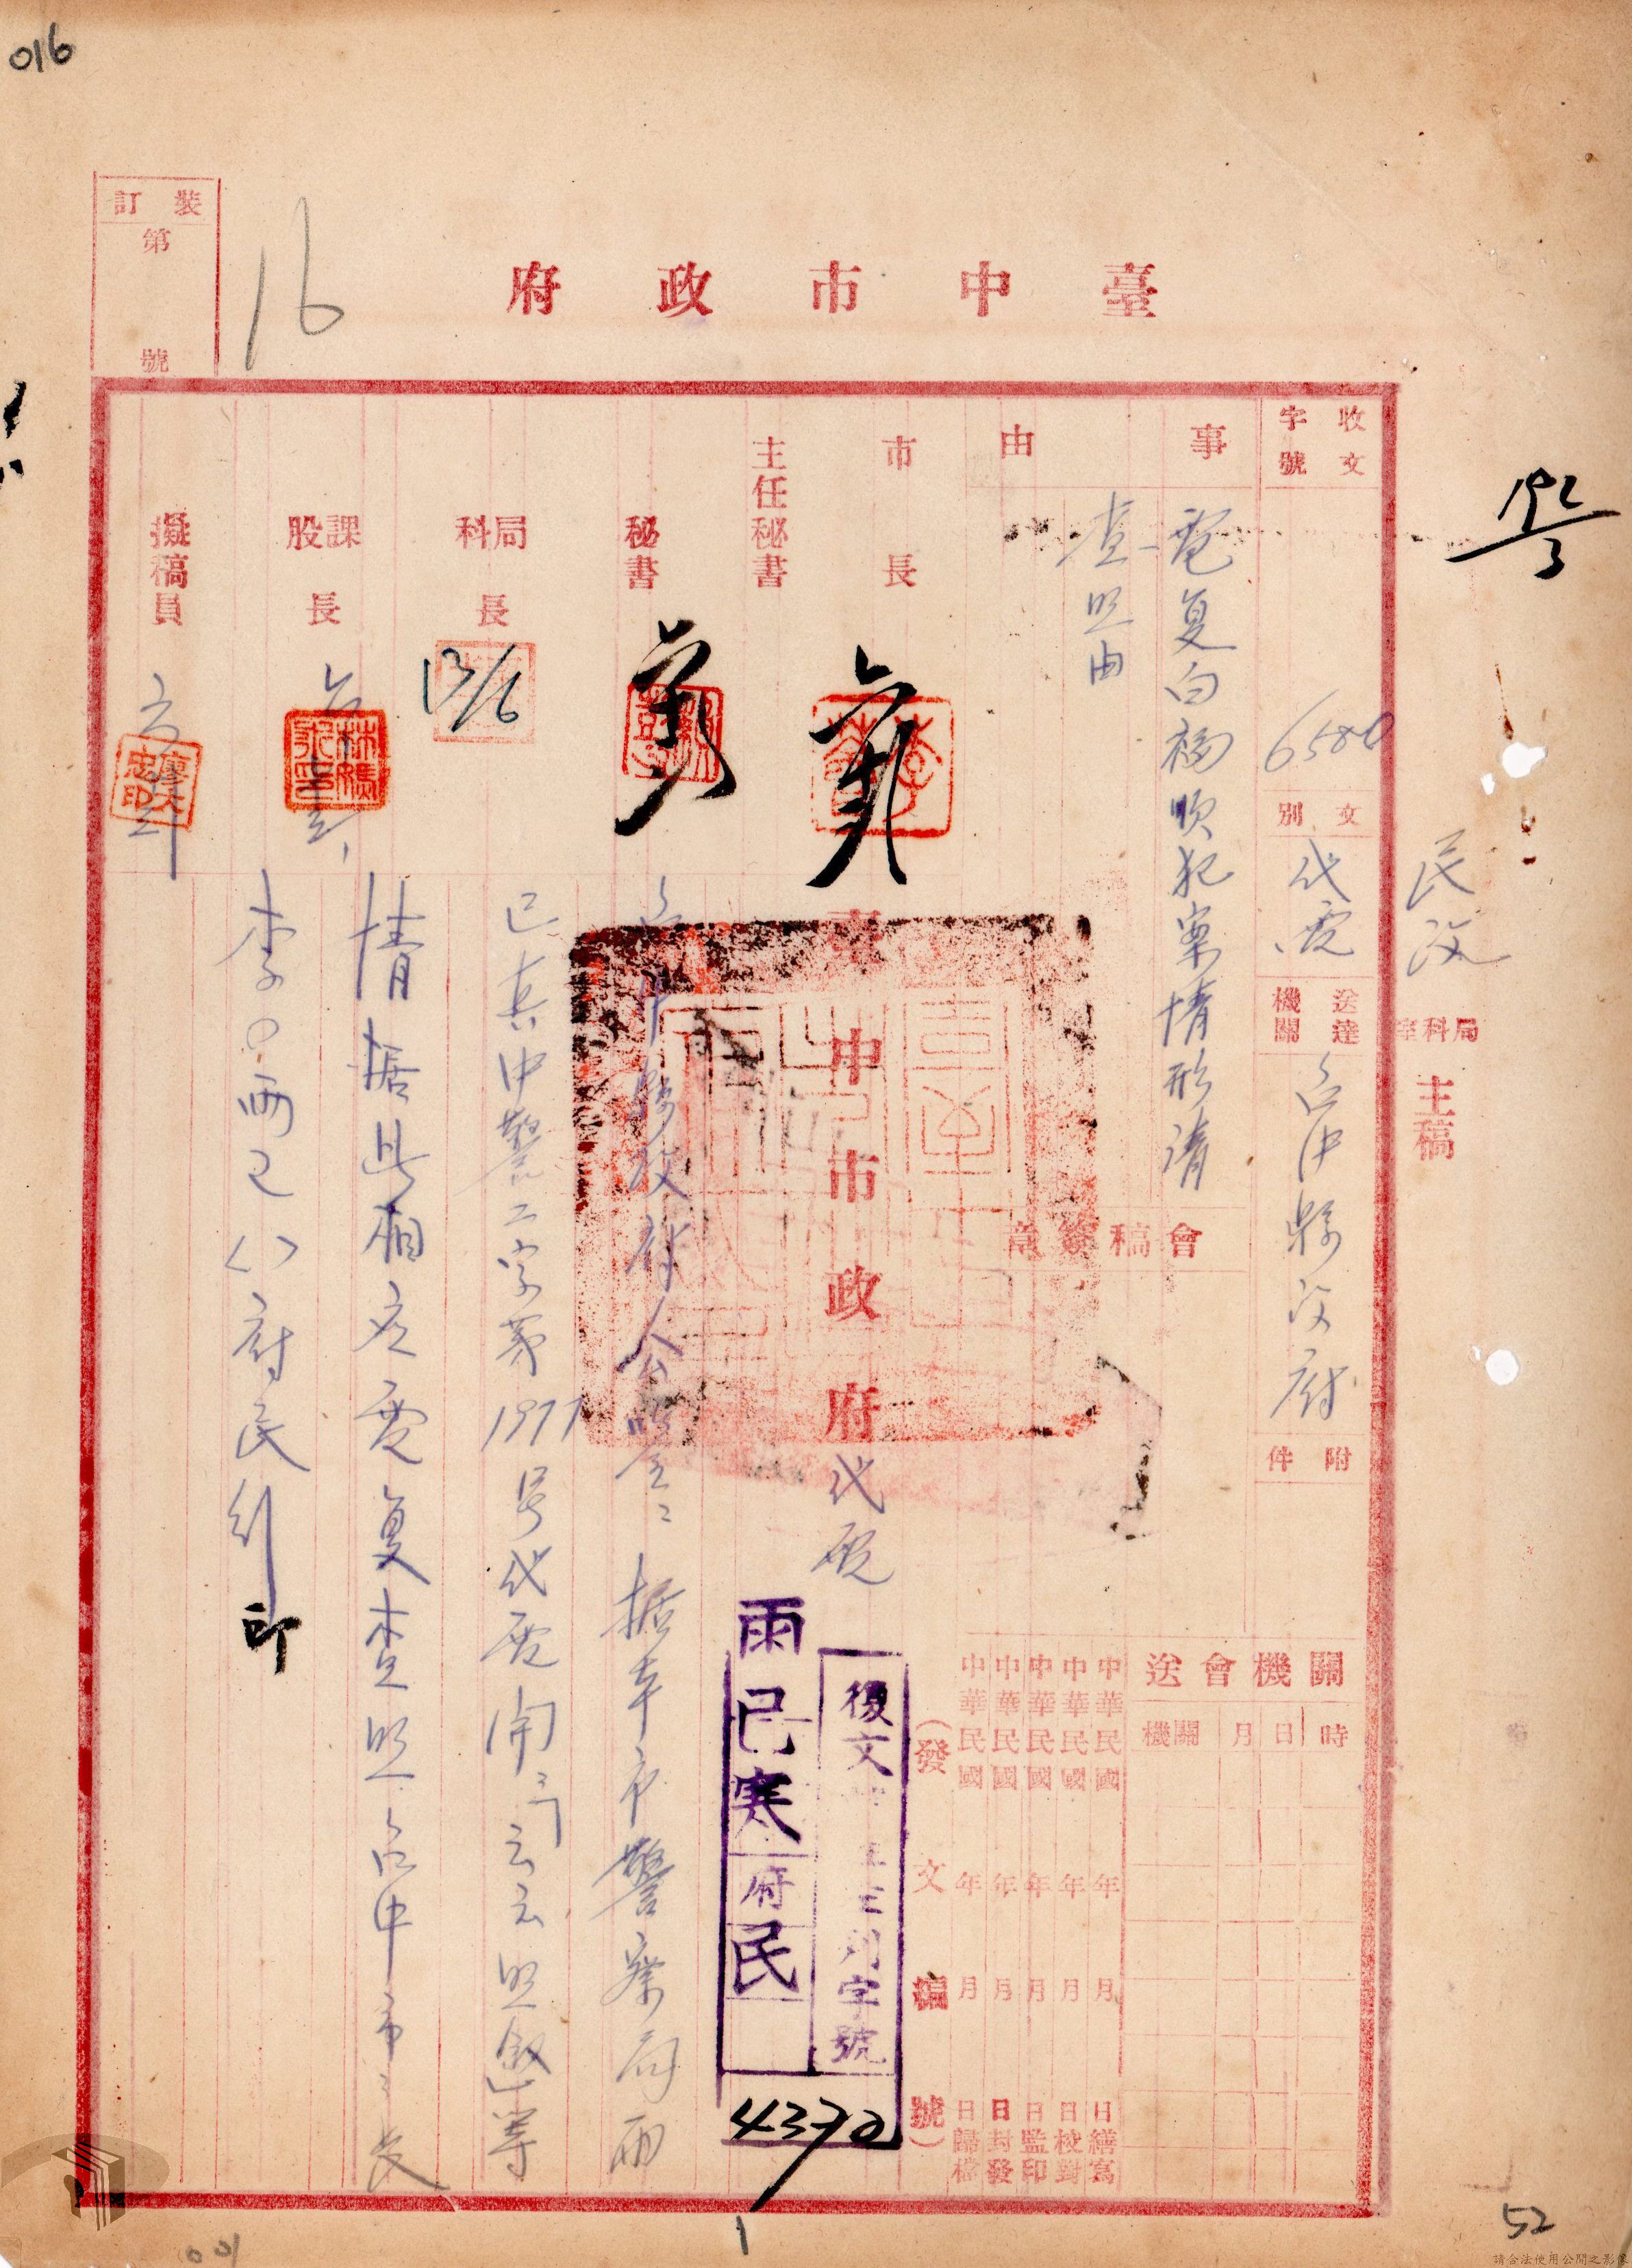 016
裝訂
第
號
16
臺中市政府
192/3
民政
局科室
主稿
收文
字號
6580
文別
代電
送達機關
台中縣政府
附件
事由
電复白福順犯案情形請
查照由
會稿簽章
市長
主任秘書
秘書
局科長
13/6
課股長
擬稿員
林鴻
廖大忠印
關機會送
時
日
月
機關
中華民國 年 月 日繕寫
中華民國 年 月 日校對
中華民國 年 月 日監印
中華民國 年 月 日封發
中華民國 年 月 日歸檔
(發文編號)
臺中市政府代電
復文
列字號
雨已寒
府
民
4372
台中縣政府公鑒：据本市市警察局雨
已真中警二字第1977号代電開「云云照敘」等
情据此相應電复查照台中市市長
李〇雨已〇府民〇印
1
52
001
請合法使用公開之影像